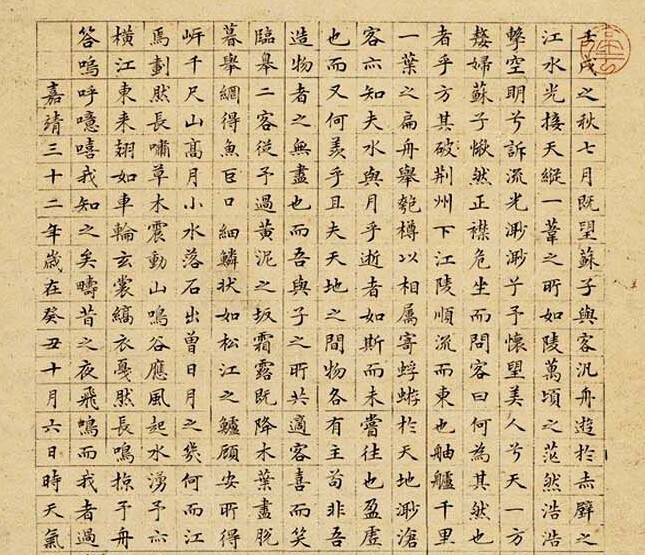 壬戌之秋七月既望蘇子與客汎舟遊於赤壁之
江水光接天縱一葦之所如陵萬頃之茫然浩浩
擊空明兮訴流光渺渺兮予懷望美人兮天一方
嫠婦蘇子愀然正襟危坐而問客曰何為其然也
者乎方其破荊州下江陵順流而東也舳艫千里
一葉之扁舟舉匏樽以相属寄蜉蝣於天地渺滄
客亦知夫水與月乎逝者如斯而未嘗往也盈虛
也而又何羨乎且夫天地之間物各有主苟非吾
造物者之無盡也而吾與子之所共適客喜而笑
臨臯二客從予過黃泥之坂霜露既降木葉盡脫
暮舉網得魚巨口細鱗狀如松江之鱸顧安所得
岸千尺山高月小水落石出曾日月之幾何而江
焉劃然長嘯草木震動山鳴谷應風起水湧予亦
橫江東来翅如車輪玄裳縞衣戛然長鳴掠予舟
答嗚呼噫嘻我知之矣疇昔之夜飛鳴而我者過
嘉靖三十二年歲在癸丑十月六日時天氣